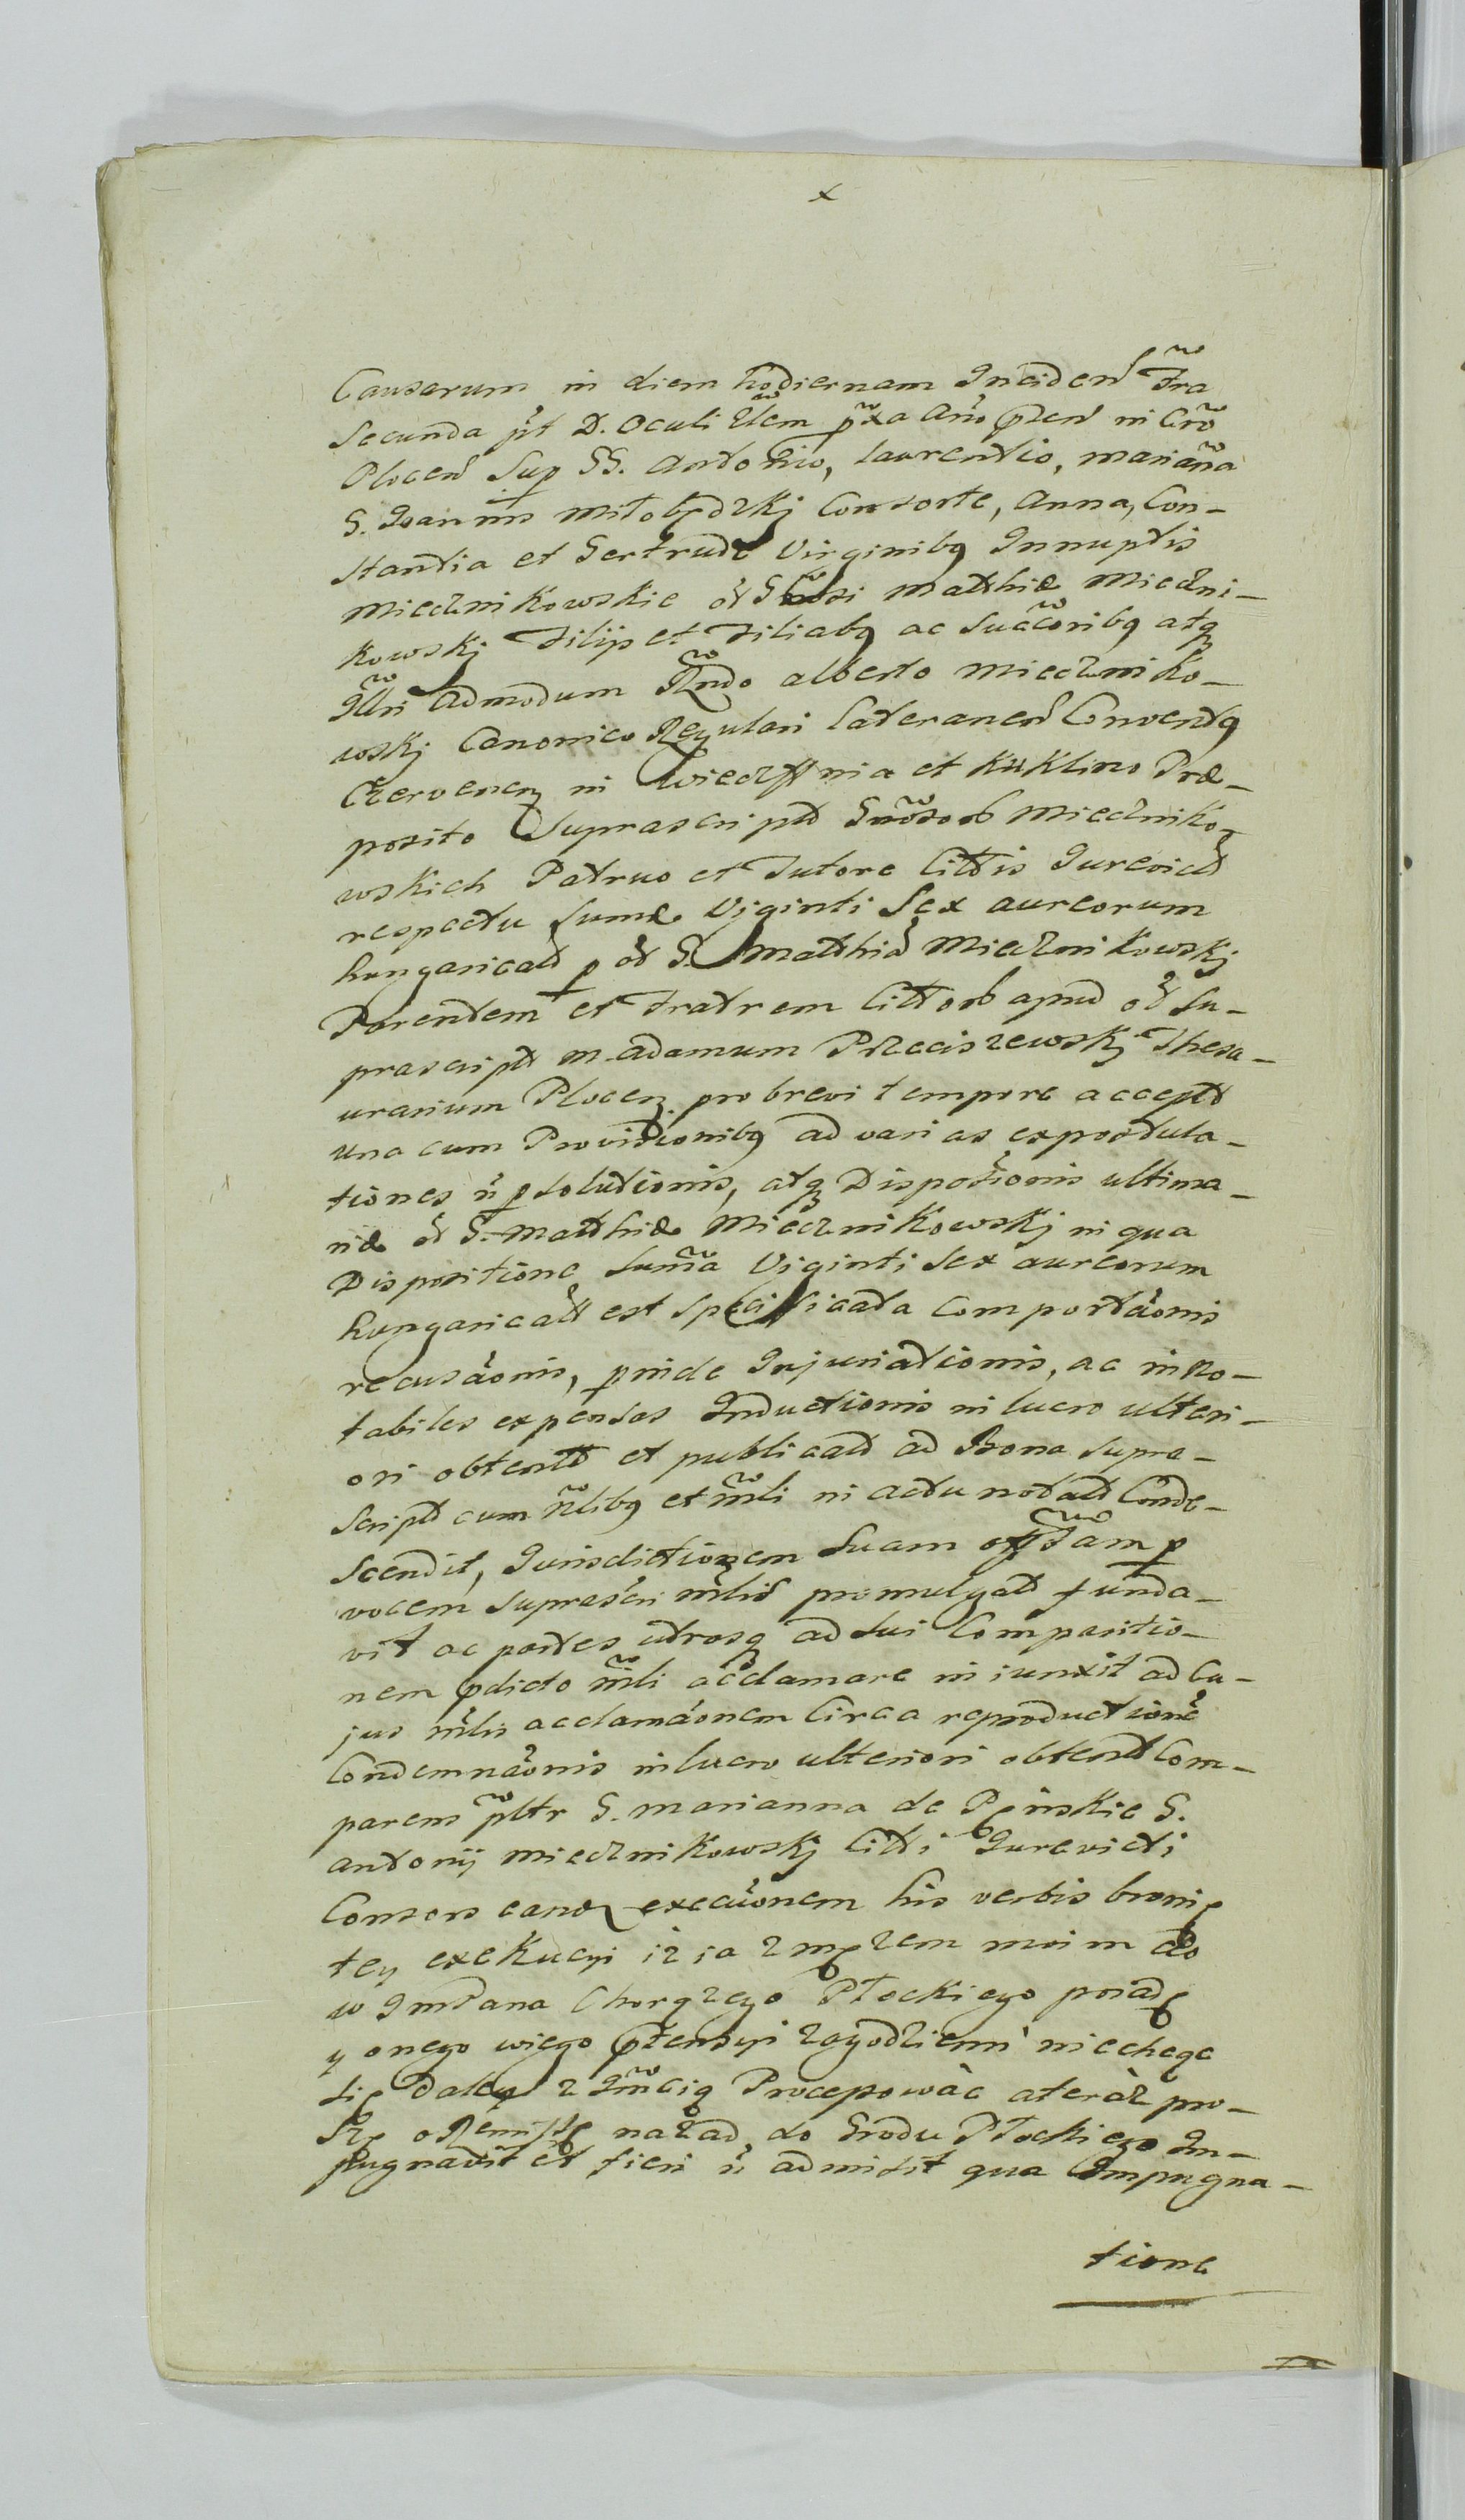 x
Causarum in diem hodiernam Inciden Fra
Secunda pt D. Oculi Elem pxa Ano pten in Cro
Plocen Sup SS. Antonio, Laurentio, Marianna
S. Joannis Miłobędzkj Consorte, Anna, Con-
stantia et Gertrude Virginibq Innuptis
Miecznikowskie od Gnosi Matthiæ Mieczni-
kowskj Filijs et Filiabq ac Succoribq atq
Illri Admodum Rndo Alberto Mieczniko-
wskj Canonico Regulari Lateranen Conventq
Czervenen in Wieczfnia et Kuklino Præ-
posito Suprascript Gnosorb Mieczniko-
wskich Patruo et Tutore Cittis Jurevict
respectu Sumæ Viginti Sex aureorum
hungaricalt p od G. Matthia Miecznikowskj
Parentem et Fratrem Cittorb apud od Su-
prascript M. Adamum Przeciszewskj Thesa-
urarium Plocen pro brevi tempore accept
una cum Provisionibq ad varias expostula-
tiones n psolutionis, atq Dispositionis ultima-
riæ od G. Matthiæ Miecznikowskj in qua
Dispositione Suma Viginti Sex aureorum
hungaricalt est Specificata Comportaonis
recusaonis, pinde Injuriationis, ac in No-
tabiles expensas Inductionis in lucro ulteri-
ori obtent et publicat ad Bona supra-
Script cum nlibq et mli in actu notat Conde-
Scendit, Jurisdictionem Suam p
vocem Suprascri mlis promulgat funda-
vit ac partes utrosq ad Sui Comparitio-
nem pdicto mli acclamare in iunxit ad Cu-
jus mlis acclamaonem Circa reproductione
Condemnaonis in lucro ulteriori obtent Com-
parens pltr G. Marianna de Pęńskie G.
Antonij Miecznikowskj Citti Jurevicti
Consors eand execuonem his verbis bronię
tey exekucyi iż ia z mężem moim do
w ImPana Chorążego Płockiego poiadę
y onego wiego ptensyi zagodziemi niechcąc
się daley z Imcią Procesować ateraz pro-
szę o Remissę nazad do Grodu Płockiego Im-
pugnavit et fieri n admisit qua Impugna-
tione